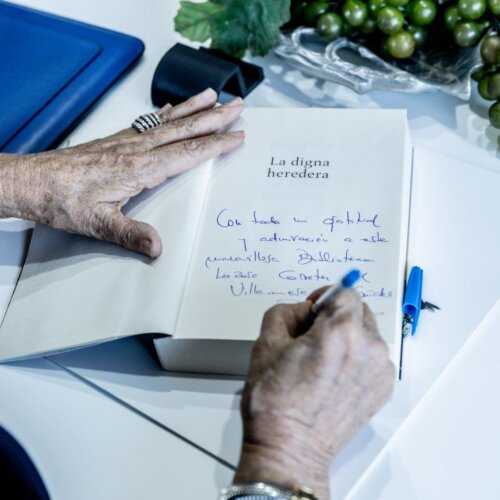 La digna
heredera
Con toda mi gratitud
y admiración a esta
maravillosa Biblioteca
Lázaro Carreter de
Villanueva